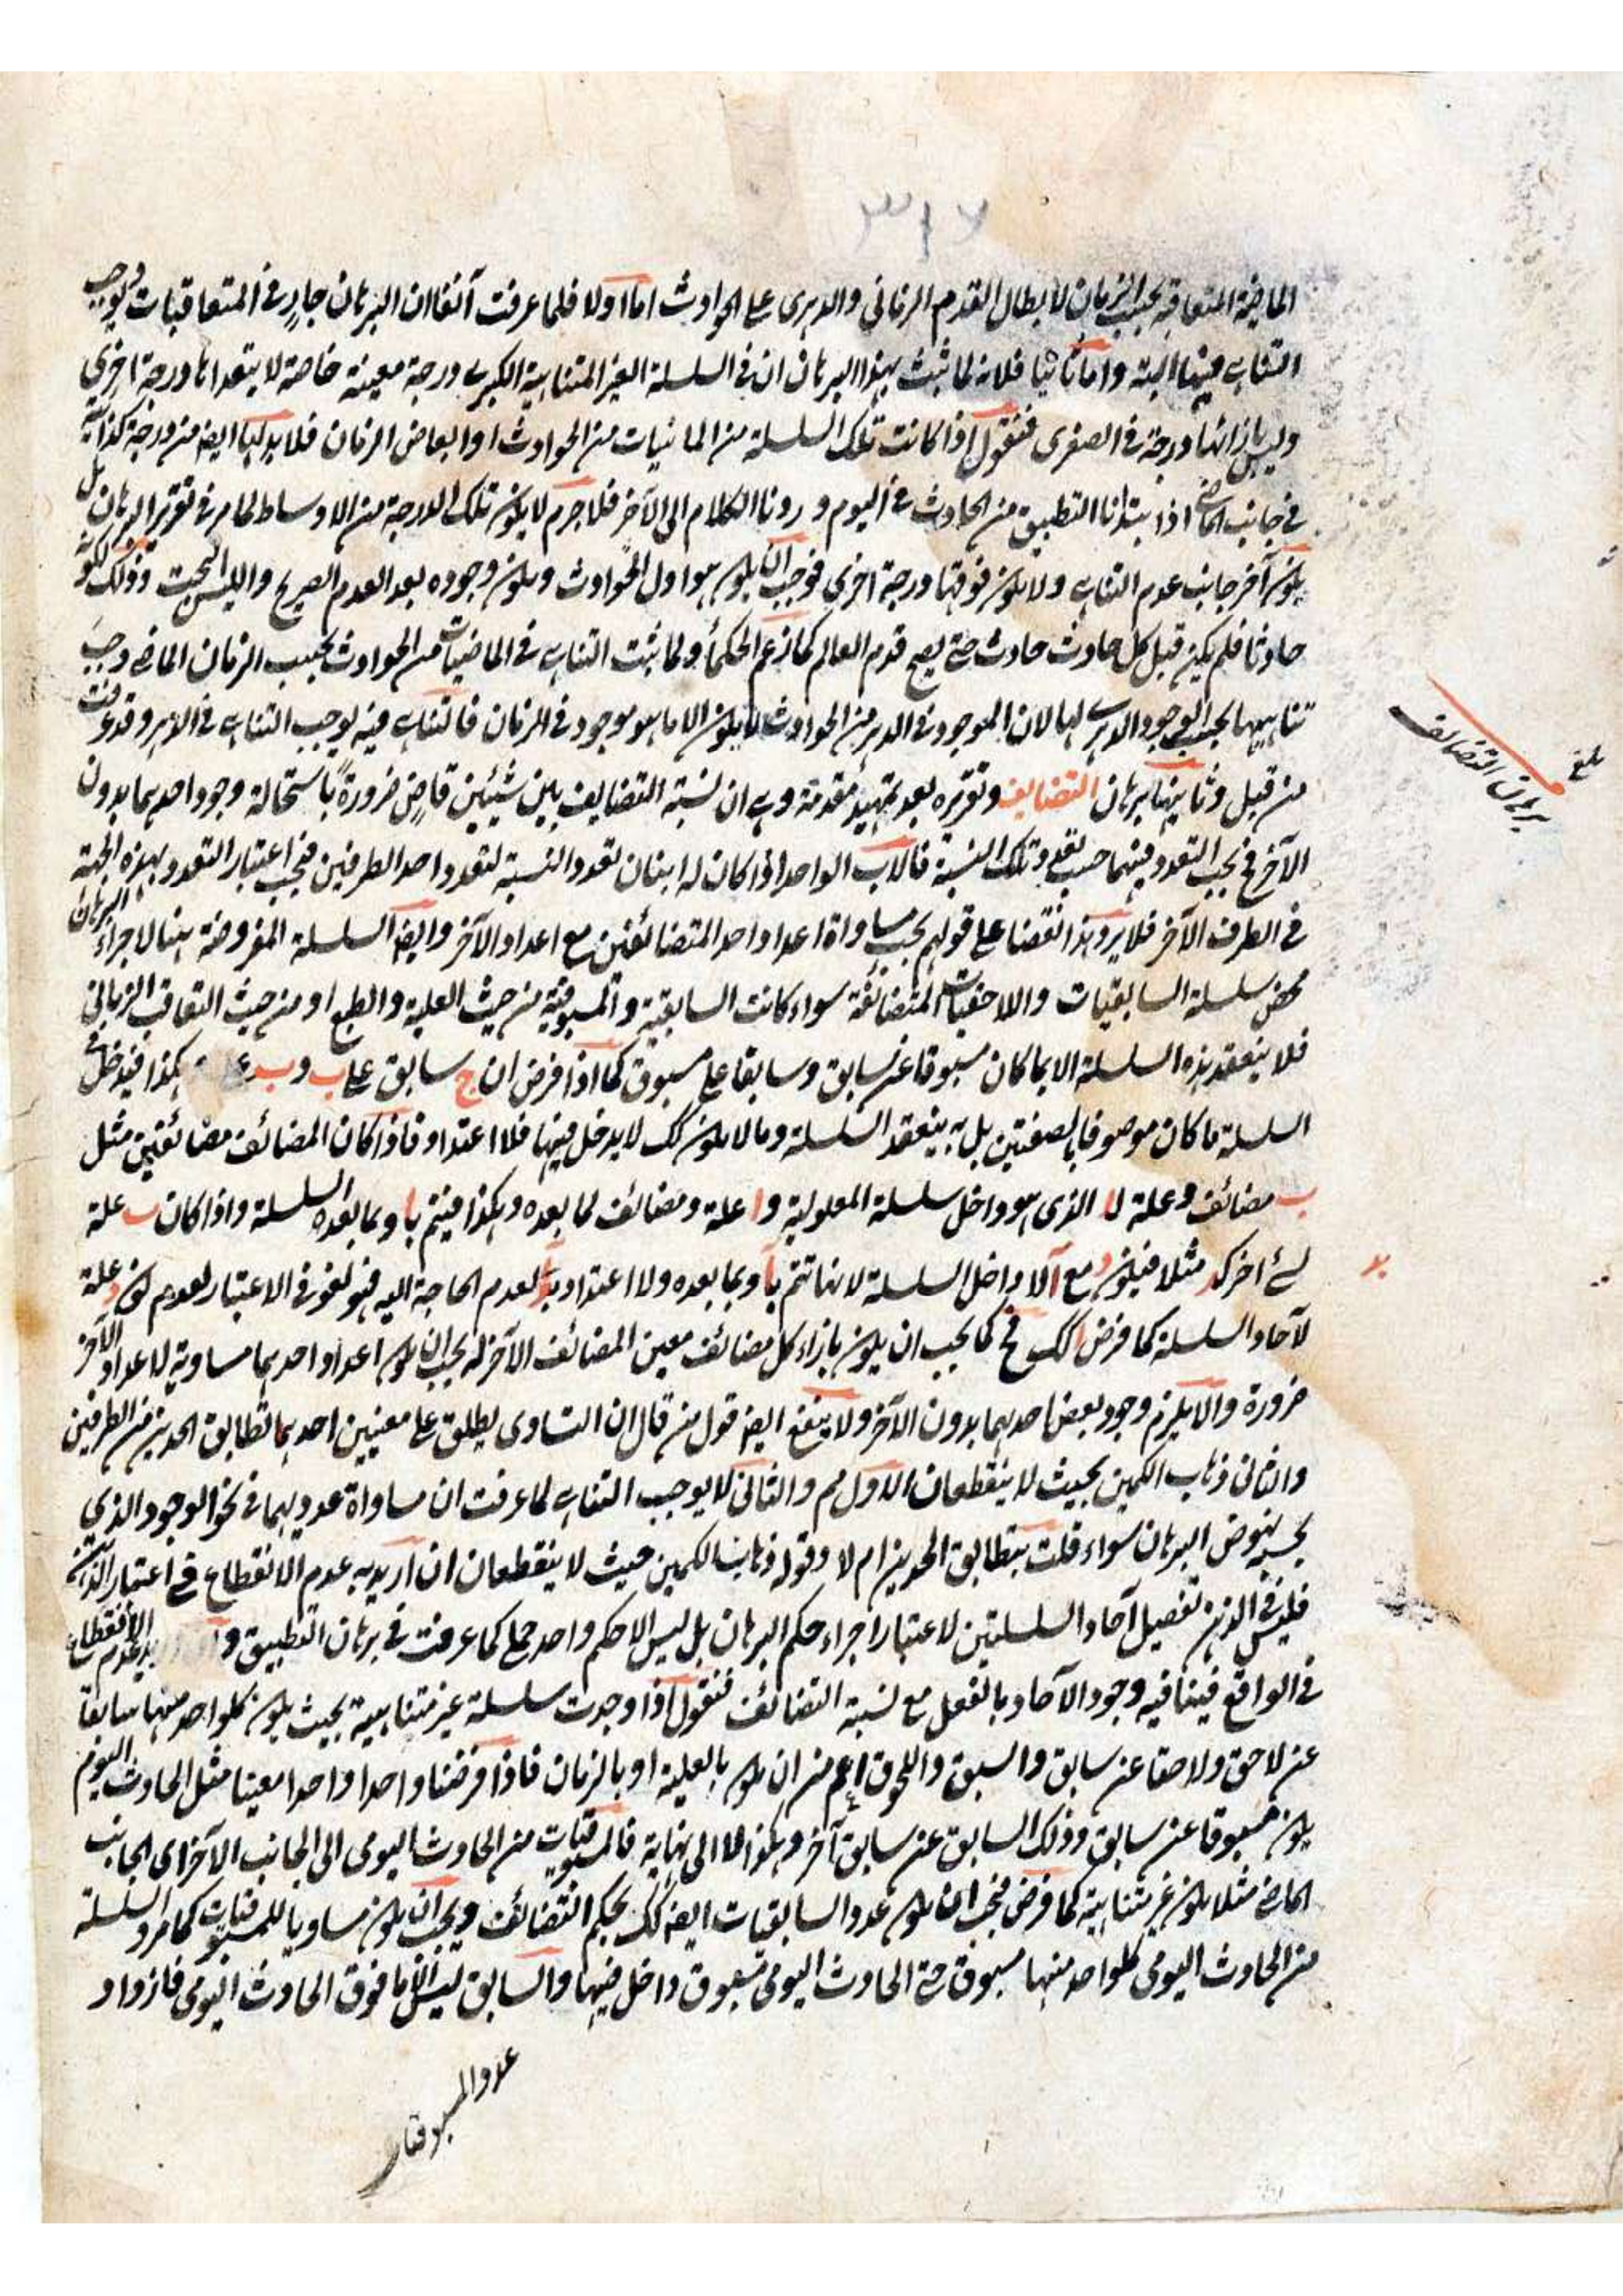 ٣١٦
الماضية المتعاقبة بحسب الزمان لابطال القدم الزماني والدهرى على الحوادث اما اولا فلما عرفت آنفا ان البرهان جار في المتعاقبات ويوجب
التناهى فيها البتة واما ثانيا فلانه لما ثبت بهذا البرهان ان في السلسلة الغير المتناهية الكبرى درجة معينة خاصة لا يتعداها درجة اخرى
وليس بازائها درجة في الصغرى فنقول اذا كانت تلك السلسلة من الماضيات من الحوادث او ابعاض الزمان فلا بد لها ايضا من درجة كذائية
في جانب الماضى اذا ابتدأنا التطبيق من الحادث في اليوم و رونا الكلام الى الآخر فلا جرم لا يكون تلك الدرجة من الاوساط لما مر في تقرير البرهان بل
يكون آخر جانب عدم التناهى ولا يكون فوقها درجة اخرى فوجب ان يكون هو اول الحوادث ويكون وجوده بعد العدم الصريح والليس البحت وذلك لكونه
حادثا فلم يكن قبل كل حادث حادث حتى يصح قدم العالم كما زعم الحكماء ولما ثبت التناهى في الماضيات من الحوادث بحسب الزمان الماضى وجب
تناهيها بحسب الوجود الدهرى لها لان الموجود في الدهر من الحوادث لا يكون الا ما هو موجود في الزمان فالتناهى فيه يوجب التناهى في الدهر وقد عرفت
من قبل وثانيها برهان التضايف وتقريره بعد تمهيد مقدمة وهى ان نسبة التضايف بين شيئين قاض ضرورة باستحالة وجود احدهما بدون
الآخر فح يجب التعدد فيهما حسب تعدد تلك النسبة فالاب الواحد اذا كان له ابنان تعدد النسبة لتعدد احد الطرفين فيجب اعتبار التعدد بهذه الجهة
في الطرف الآخر فلا يرد هذا نقضا على قولهم بحسب مساواة اعداد احد المتضائفين مع اعداد الآخر وايضا السلسلة المفروضة هنا لاجراء البرهان
محض سلسلة السابقيات واللاحقيات المتضائفة سواء كانت السابقية والمسبوقية من حيث العلية والطبع او من حيث التعاقب الزمانى
فلا ينعقد هذه السلسلة الا بما كان مسبوقا عن سابق وسابقا على مسبوق كما اذا فرض ان ج سابق على ب وب على هكذا فيدخل في
السلسلة ما كان موصوفا بالصفتين بل به ينعقد السلسلة وما لا يكون كك لا يدخل فيها فلا اعتداد فاذا كان المضائف مضائفتين مثل
ب مضائف وعلة لـ ا الذى هو داخل سلسلة المعلولية و ا علة ومضائف لما بعده وهكذا فيتم با وبما بعده السلسلة واذا كان ب علة
لشئ اخر كد مثلا فيكون د مع آ لا داخل السلسلة لانها تتم بآ وبما بعده ولا اعتداد بد لعدم الحاجة اليه فهو لغو في الاعتبار لعدم كون د علة
لآحاد السلسلة كما فرض كك فح كما يجب ان يكون بازاء كل مضائف معين المضائف الآخر له يجب ان يكون اعداد احدهما مساوية لاعداد الآخر
ضرورة والا يلزم وجود بعض احدهما بدون الآخر ولا ينفع ايضا قول من قال ان التساوى يطلق على معنيين احدهما تطابق الحدين من الطرفين
والثانى ذهاب الكمين بحيث لا ينقطعان الاول مم والثانى لا يوجب التناهى لما عرفت ان مساواة عدديهما في نحو الوجود الذي
بحسبه نهوض البرهان سواء قلت بتطابق الحدين ام لا وقوله ذهاب الكمين حيث لا ينقطعان ان اريد به عدم الانقطاع في اعتبار الذهن
فليس في الذهن تفصيل آحاد السلسلتين لاعتبار اجراء حكم البرهان بل ليس الا حكم واحد جملى كما عرفت في برهان التطبيق و يد عدم الانقطاع
في الواقع فينافيه وجود الآحاد بالفعل مع نسبة التضائف فنقول اذا وجدت سلسلة غير متناهية بحيث يكون كلواحد منها سابقا
عن لاحق ولاحقا عن سابق والسبق واللحوق اعم من ان يكون بالعلية او بالزمان فاذا فرضنا واحدا واحدا معينا مثل الحادث اليوم
يكون مسبوقا عن سابق وذلك السابق عن سابق آخر وهكذا لا الى نهاية فالمسبوقيات من الحادث اليومى الى الجانب الآخر اى الجانب
الماضى مثلا يكون غير متناهية كما فرض فيجب ان يكون عدد السابقيات ايضا كك بحكم التضائف ويجب ان يكون مساويا للمسبوقيات كما مر والسلسلة
من الحادث اليومى كلواحد منها مسبوق حتى الحادث اليومى مسبوق داخل فيها والسابق ليس الا ما فوق الحادث اليومى فازداد
عدد المسبوقيات
بلغ
برهان التضائف